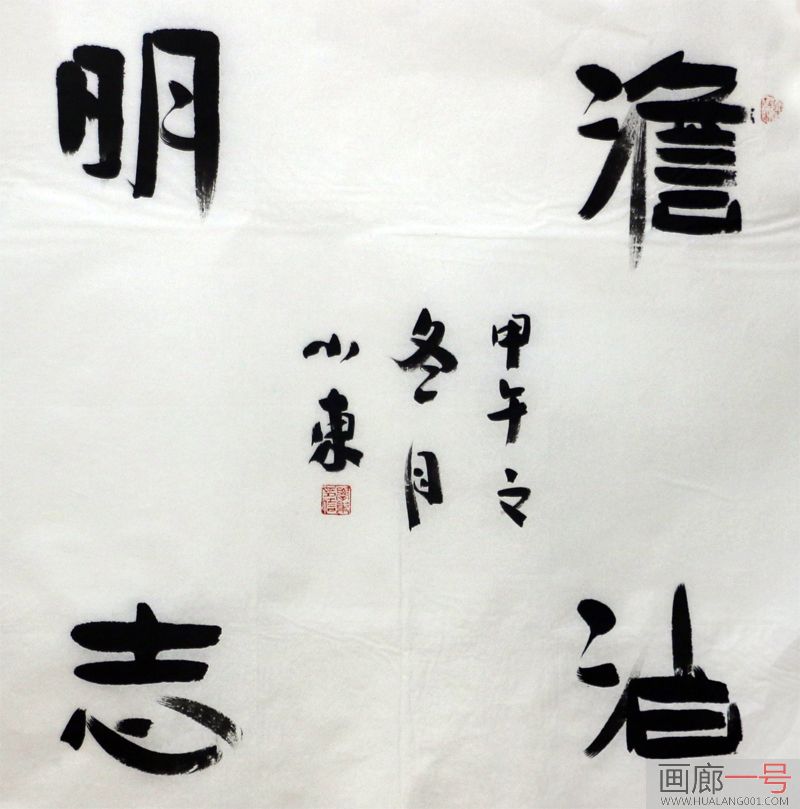 澹泊
明志
甲午之
冬月
小東
画廊一号
WWW.HUALANG001.COM